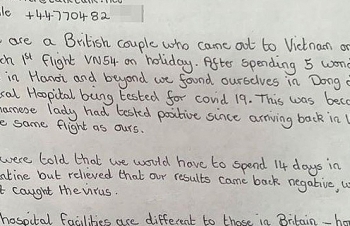 le +44770482
are a British couple who came out to Vietnam on
ch 1st Flight VN54 on holiday. After spending 5 wond
in Hanoi and beyond we found ourselves in Dong
ral Hospital being tested for covid 19. This was beca
namese lady had tested positive since arriving back in
e same flight as ours.
were told that we would have to spend 14 days in
ntine but relieved that our results came back negative, w
t caught the virus.
hospital facilities are different to those in Britain – ho